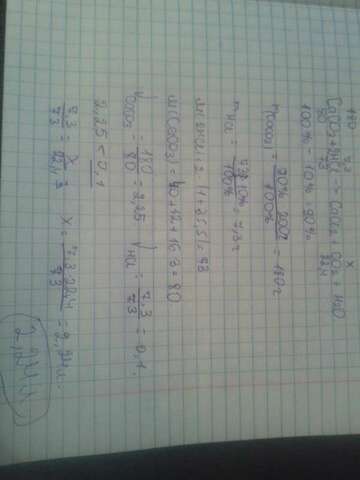 180 7,3 X
CaCO₃ + 2HCl = CaCl₂ + CO₂ + H₂O
80 73 22,4
100% - 10% = 90%
mCaCO₃ = 90% · 200 / 100% = 180г
mHCl = 73 · 10% / 100% = 7,3г
M(CaCO₃) = 40 + 12 + 16·3 = 80
νCaCO₃ = 180 / 80 = 2,25 νHCl = 7,3 / 73 = 0,1.
2,25 < 0,1
7,3 / 73 = X / 22,4 X = 7,3·22,4 / 73 = 2,24л.